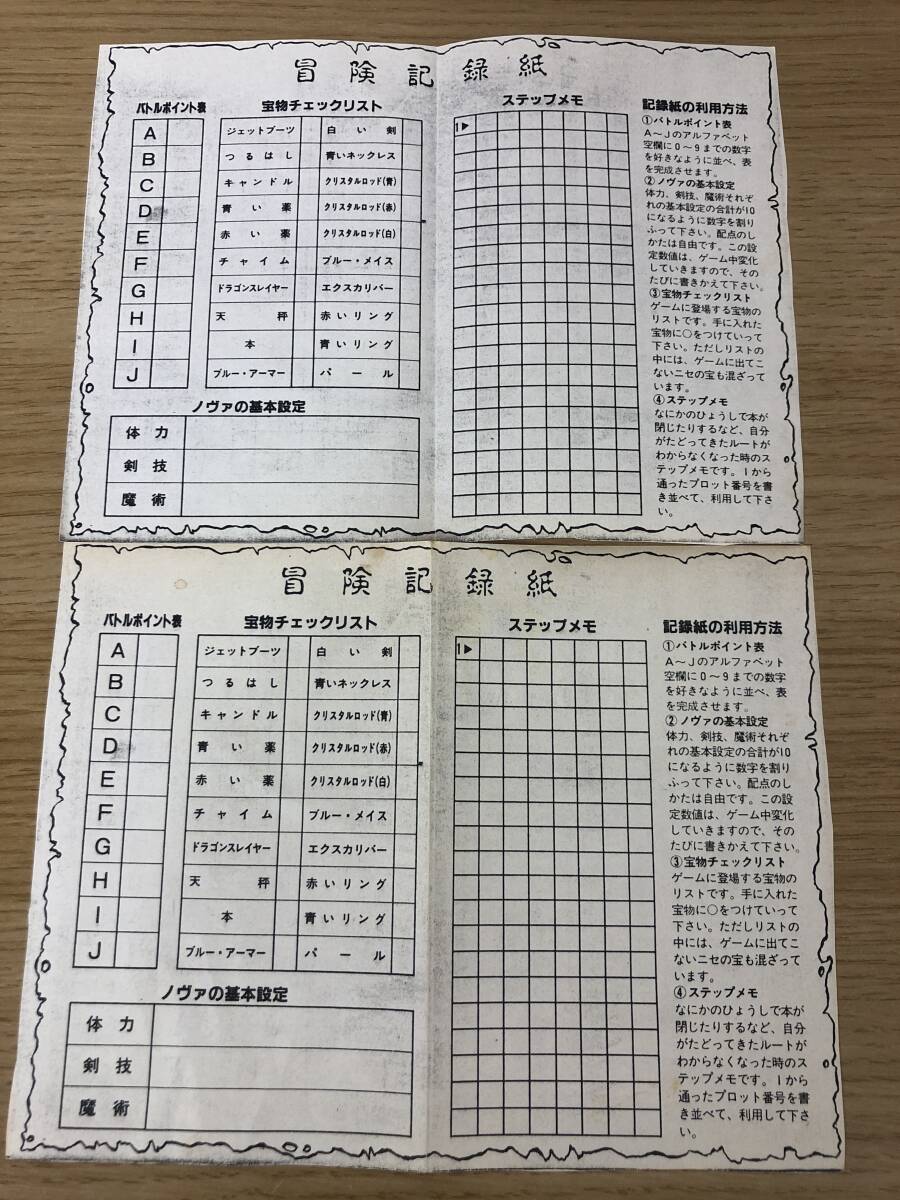 冒険記録紙
バトルポイント表
A
B
C
D
E
F
G
H
I
J
宝物チェックリスト
ジェットブーツ 白い剣
つるはし 青いネックレス
キャンドル クリスタルロッド(青)
青い薬 クリスタルロッド(赤)
赤い薬 クリスタルロッド(白)
チャイム ブルー・メイス
ドラゴンスレイヤー エクスカリバー
天秤 赤いリング
本 青いリング
ブルー・アーマー パール
ノヴァの基本設定
体力
剣技
魔術
ステップメモ
1▶
記録紙の利用方法
①バトルポイント表
A〜Jのアルファベット
空欄に0〜9までの数字
を好きなように並べ、表
を完成させます。
②ノヴァの基本設定
体力、剣技、魔術それぞ
れの基本設定の合計が10
になるように数字を割り
ふって下さい。配点のし
かたは自由です。この設
定数値は、ゲーム中変化
していきますので、その
たびに書きかえて下さい。
③宝物チェックリスト
ゲームに登場する宝物の
リストです。手に入れた
宝物に○をつけていって
下さい。ただしリストの
中には、ゲームに出てこ
ないニセの宝も混ざって
います。
④ステップメモ
なにかのひょうしで本が
閉じたりするなど、自分
がたどってきたルートが
わからなくなった時のス
テップメモです。1から
通ったプロット番号を書
き並べて、利用して下さ
い。
冒険記録紙
バトルポイント表
A
B
C
D
E
F
G
H
I
J
宝物チェックリスト
ジェットブーツ 白い剣
つるはし 青いネックレス
キャンドル クリスタルロッド(青)
青い薬 クリスタルロッド(赤)
赤い薬 クリスタルロッド(白)
チャイム ブルー・メイス
ドラゴンスレイヤー エクスカリバー
天秤 赤いリング
本 青いリング
ブルー・アーマー パール
ノヴァの基本設定
体力
剣技
魔術
ステップメモ
1▶
記録紙の利用方法
①バトルポイント表
A〜Jのアルファベット
空欄に0〜9までの数字
を好きなように並べ、表
を完成させます。
②ノヴァの基本設定
体力、剣技、魔術それぞ
れの基本設定の合計が10
になるように数字を割り
ふって下さい。配点のし
かたは自由です。この設
定数値は、ゲーム中変化
していきますので、その
たびに書きかえて下さい。
③宝物チェックリスト
ゲームに登場する宝物の
リストです。手に入れた
宝物に○をつけていって
下さい。ただしリストの
中には、ゲームに出てこ
ないニセの宝も混ざって
います。
④ステップメモ
なにかのひょうしで本が
閉じたりするなど、自分
がたどってきたルートが
わからなくなった時のス
テップメモです。1から
通ったプロット番号を書
き並べて、利用して下さ
い。